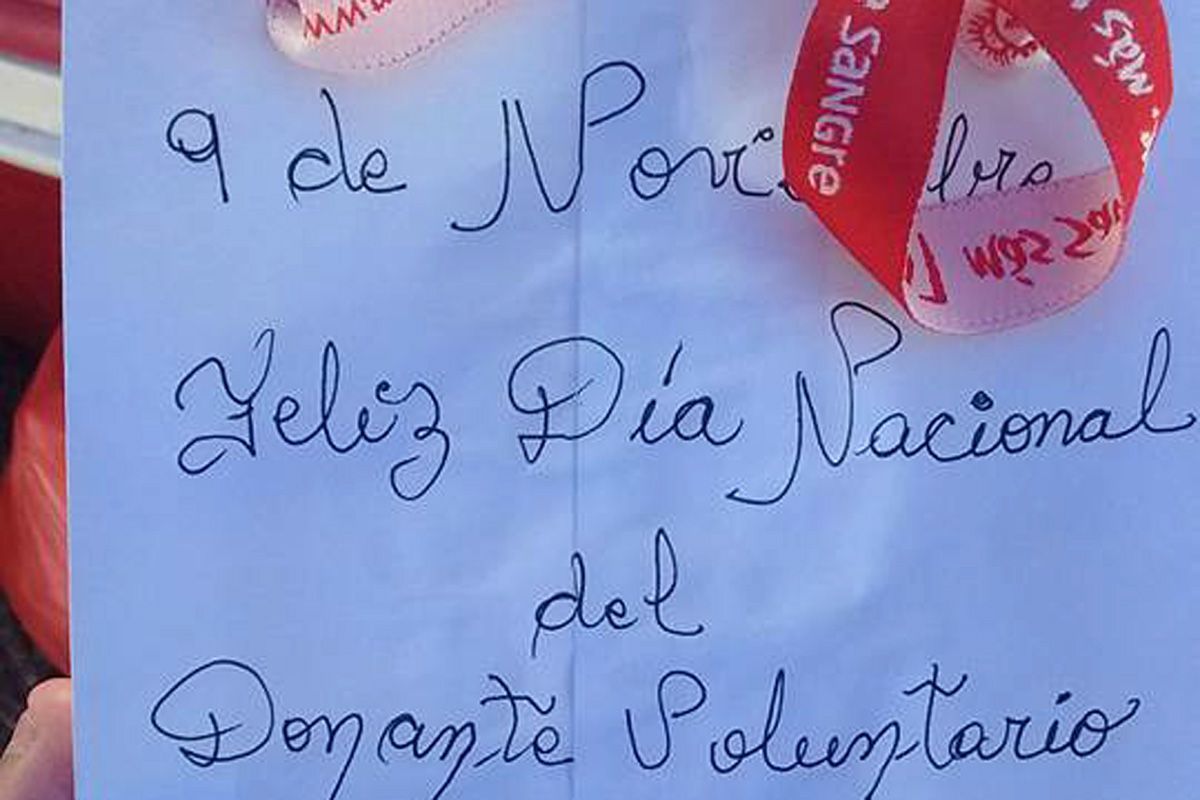 9 de Novi bre
Sangre
más
Feliz Día Nacional
del
Donante Voluntario